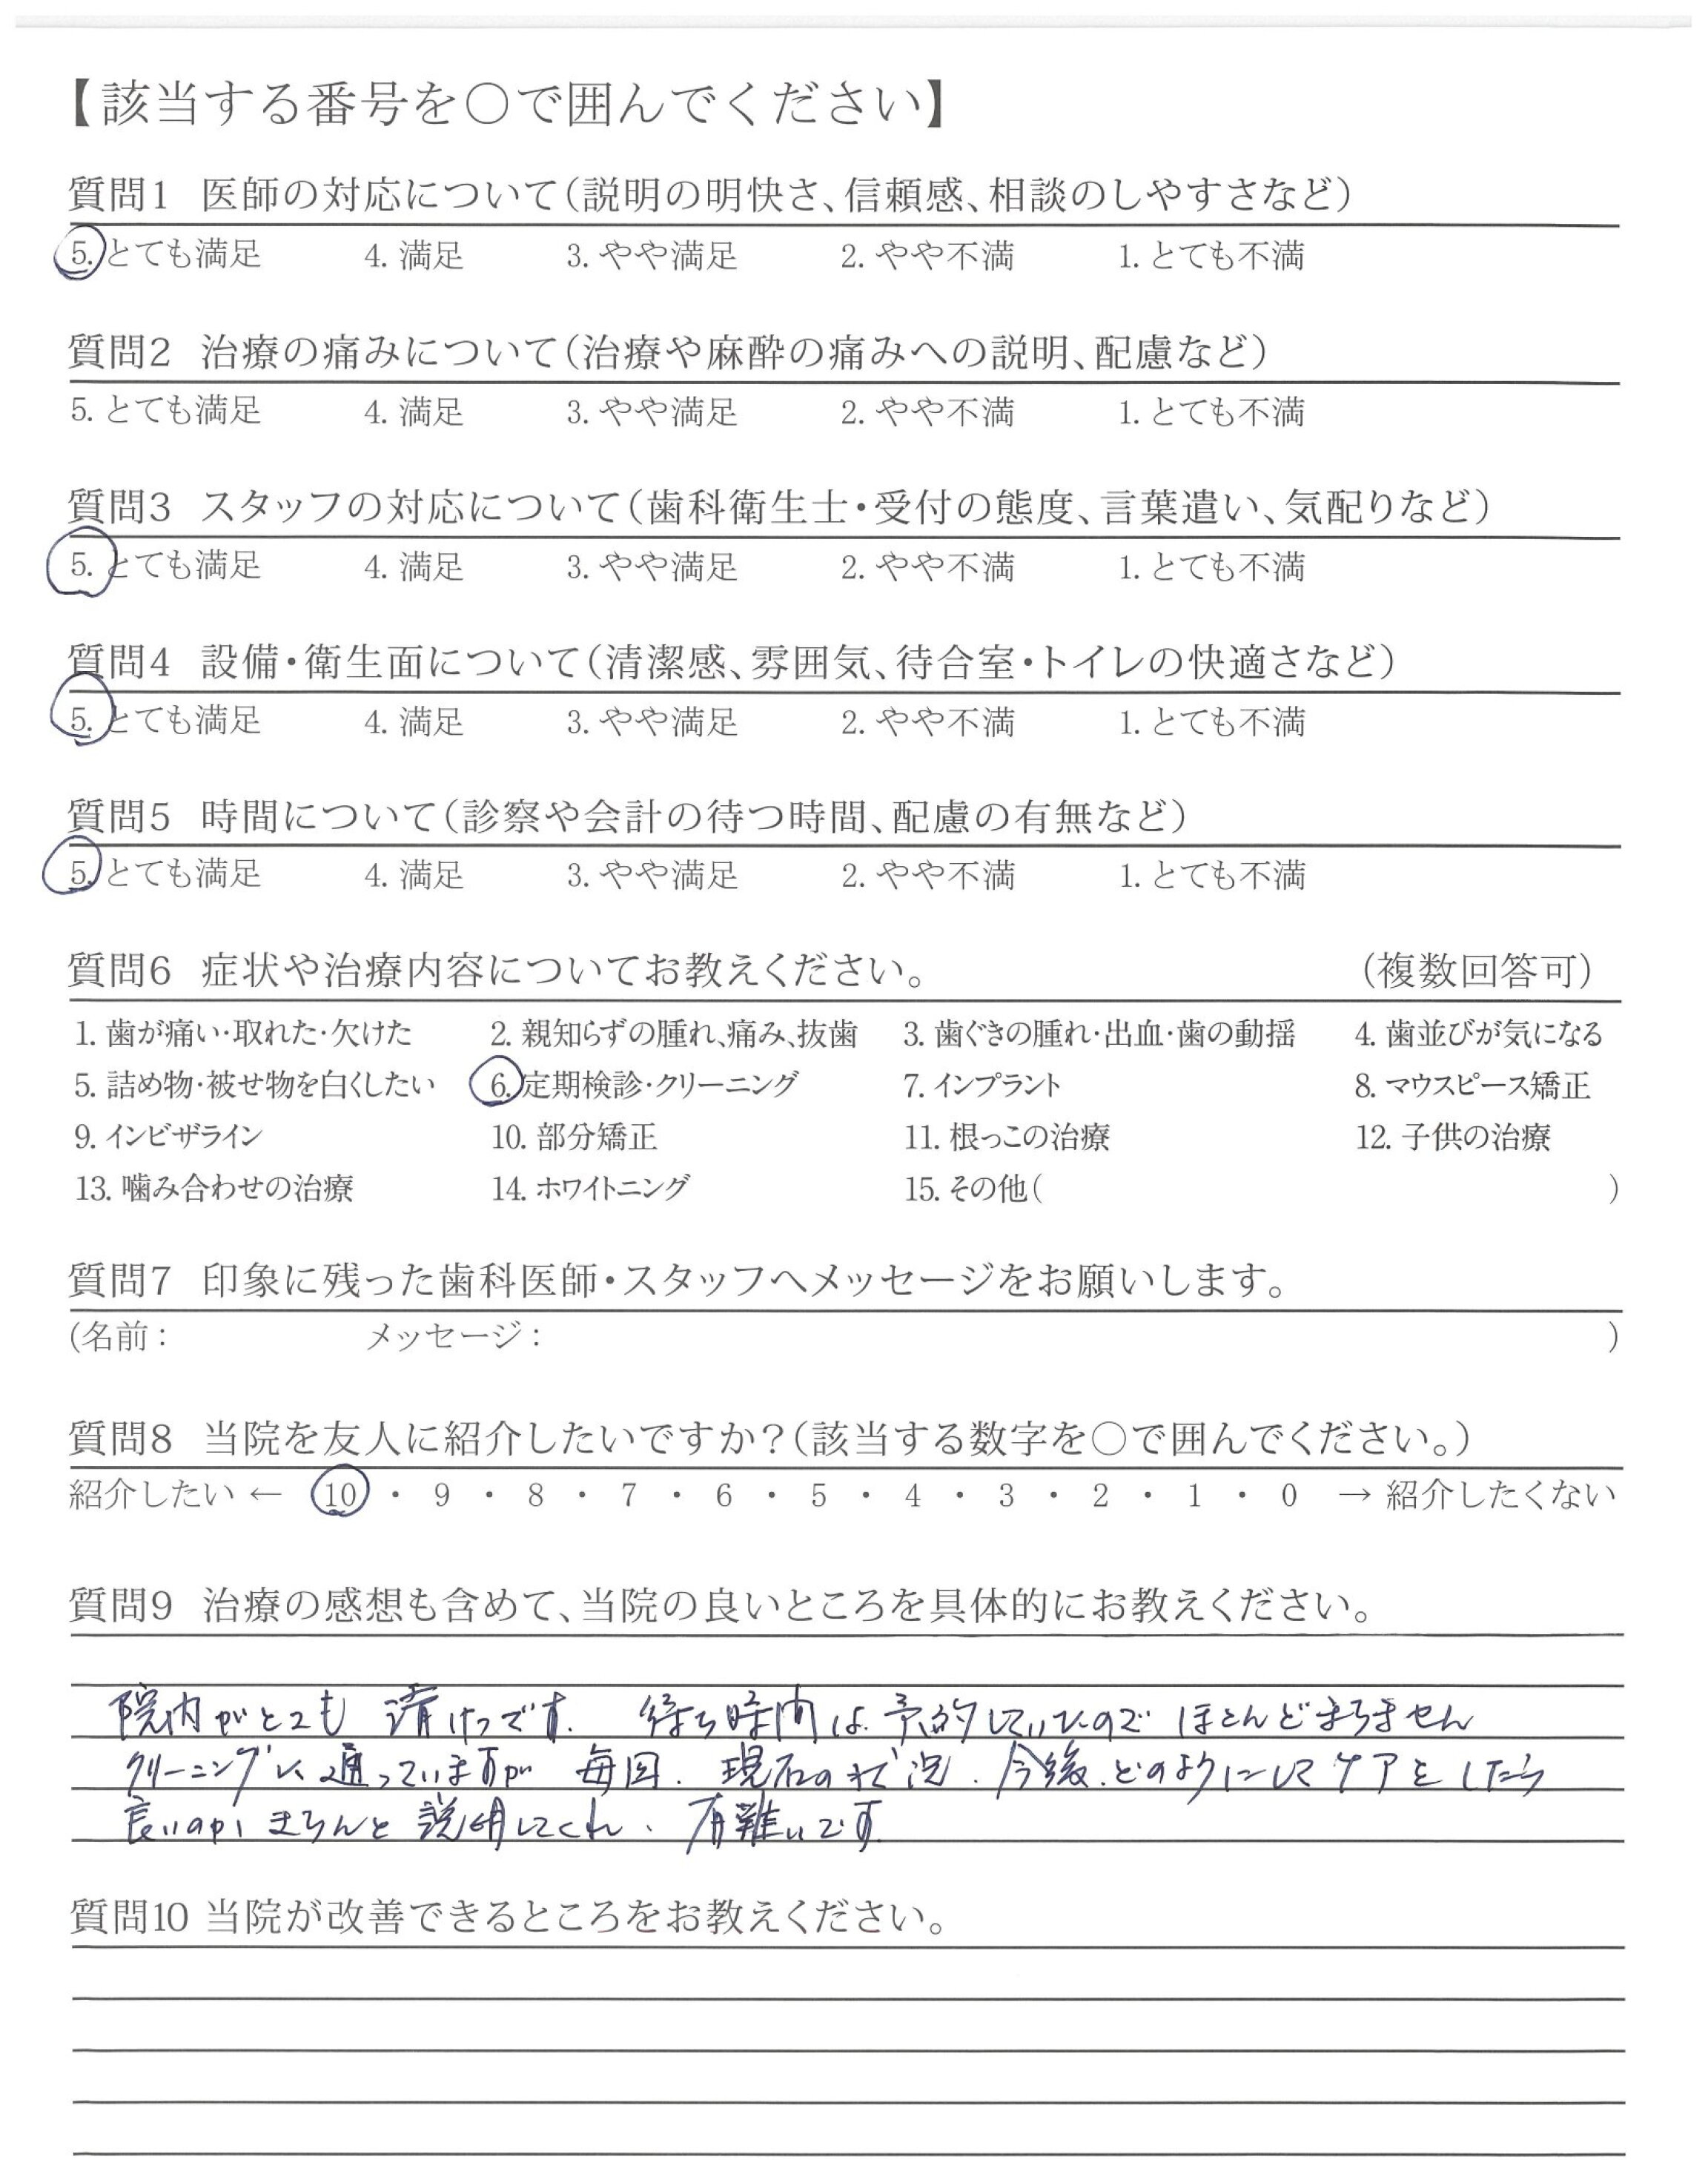 【該当する番号を○で囲んでください】
質問1 医師の対応について(説明の明快さ、信頼感、相談のしやすさなど)
5. とても満足 4. 満足 3. やや満足 2. やや不満 1. とても不満
質問2 治療の痛みについて(治療や麻酔の痛みへの説明、配慮など)
5. とても満足 4. 満足 3. やや満足 2. やや不満 1. とても不満
質問3 スタッフの対応について(歯科衛生士・受付の態度、言葉遣い、気配りなど)
5. とても満足 4. 満足 3. やや満足 2. やや不満 1. とても不満
質問4 設備・衛生面について(清潔感、雰囲気、待合室・トイレの快適さなど)
5. とても満足 4. 満足 3. やや満足 2. やや不満 1. とても不満
質問5 時間について(診察や会計の待つ時間、配慮の有無など)
5. とても満足 4. 満足 3. やや満足 2. やや不満 1. とても不満
質問6 症状や治療内容についてお教えください。 (複数回答可)
1. 歯が痛い・取れた・欠けた 2. 親知らずの腫れ、痛み、抜歯 3. 歯ぐきの腫れ・出血・歯の動揺 4. 歯並びが気になる
5. 詰め物・被せ物を白くしたい 6. 定期検診・クリーニング 7. インプラント 8. マウスピース矯正
9. インビザライン 10. 部分矯正 11. 根っこの治療 12. 子供の治療
13. 噛み合わせの治療 14. ホワイトニング 15. その他( )
質問7 印象に残った歯科医師・スタッフへメッセージをお願いします。
(名前: メッセージ: )
質問8 当院を友人に紹介したいですか?(該当する数字を○で囲んでください。)
紹介したい ← 10 ・ 9 ・ 8 ・ 7 ・ 6 ・ 5 ・ 4 ・ 3 ・ 2 ・ 1 ・ 0 → 紹介したくない
質問9 治療の感想も含めて、当院の良いところを具体的にお教えください。
院内がとても 清けつです. 待ち時間は. 予約していたので ほとんどありません
クリーニングに通っていますが 毎回. 現在の状況. 今後. どのようにしてケアをしたら
良いのか きちんと説明してくれ、有難いです.
質問10 当院が改善できるところをお教えください。